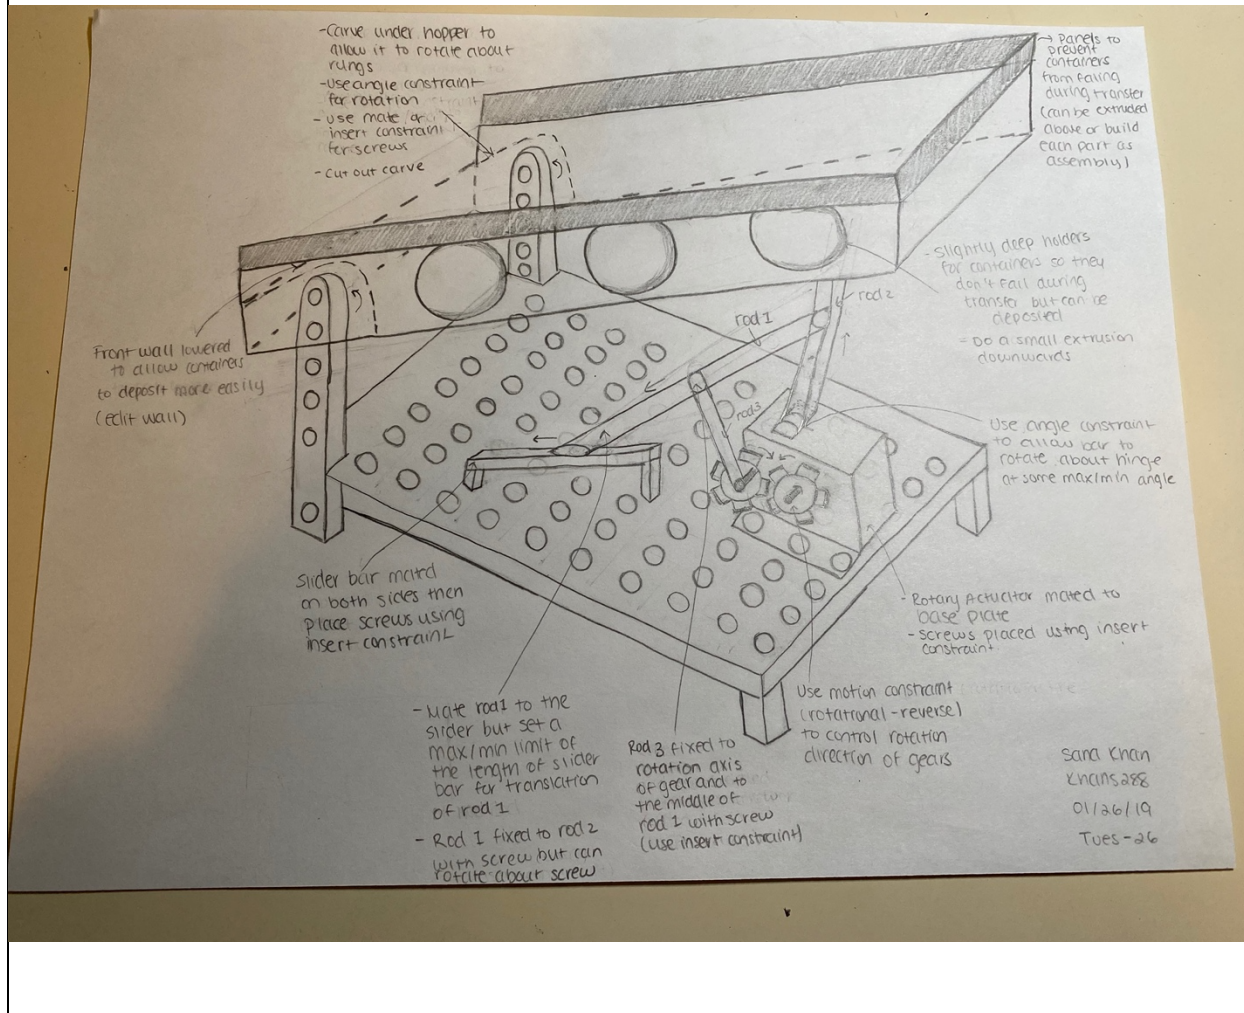 -Carve under hopper to
allow it to rotate about
rungs
-Use angle constraint
for rotation
- Use mate or
insert constraint
for screws
- Cut out carve
→ Panels to
prevent
containers
from falling
during transfer
(can be extruded
above or build
each part as
assembly)
- Slightly deep holders
for containers so they
don't fall during
transfer but can be
deposited
- Do a small extrusion
downwards
rod 2
rod 1
rod 3
Front wall lowered
to allow containers
to deposit more easily
(edit wall)
Use angle constraint
to allow bar to
rotate about hinge
at some max/min angle
Slider bar mated
on both sides then
place screws using
insert constraint
- Rotary Actuator mated to
base plate
- Screws placed using insert
constraint
- Mate rod 1 to the
slider but set a
max/min limit of
the length of slider
bar for translation
of rod 1
- Rod 1 fixed to rod 2
with screw but can
rotate about screw
Rod 3 fixed to
rotation axis
of gear and to
the middle of
rod 1 with screw
(use insert constraint)
Use motion constraint
(rotational-reverse)
to control rotation
direction of gears
Sana Khan
Khans288
01/26/19
Tues-26